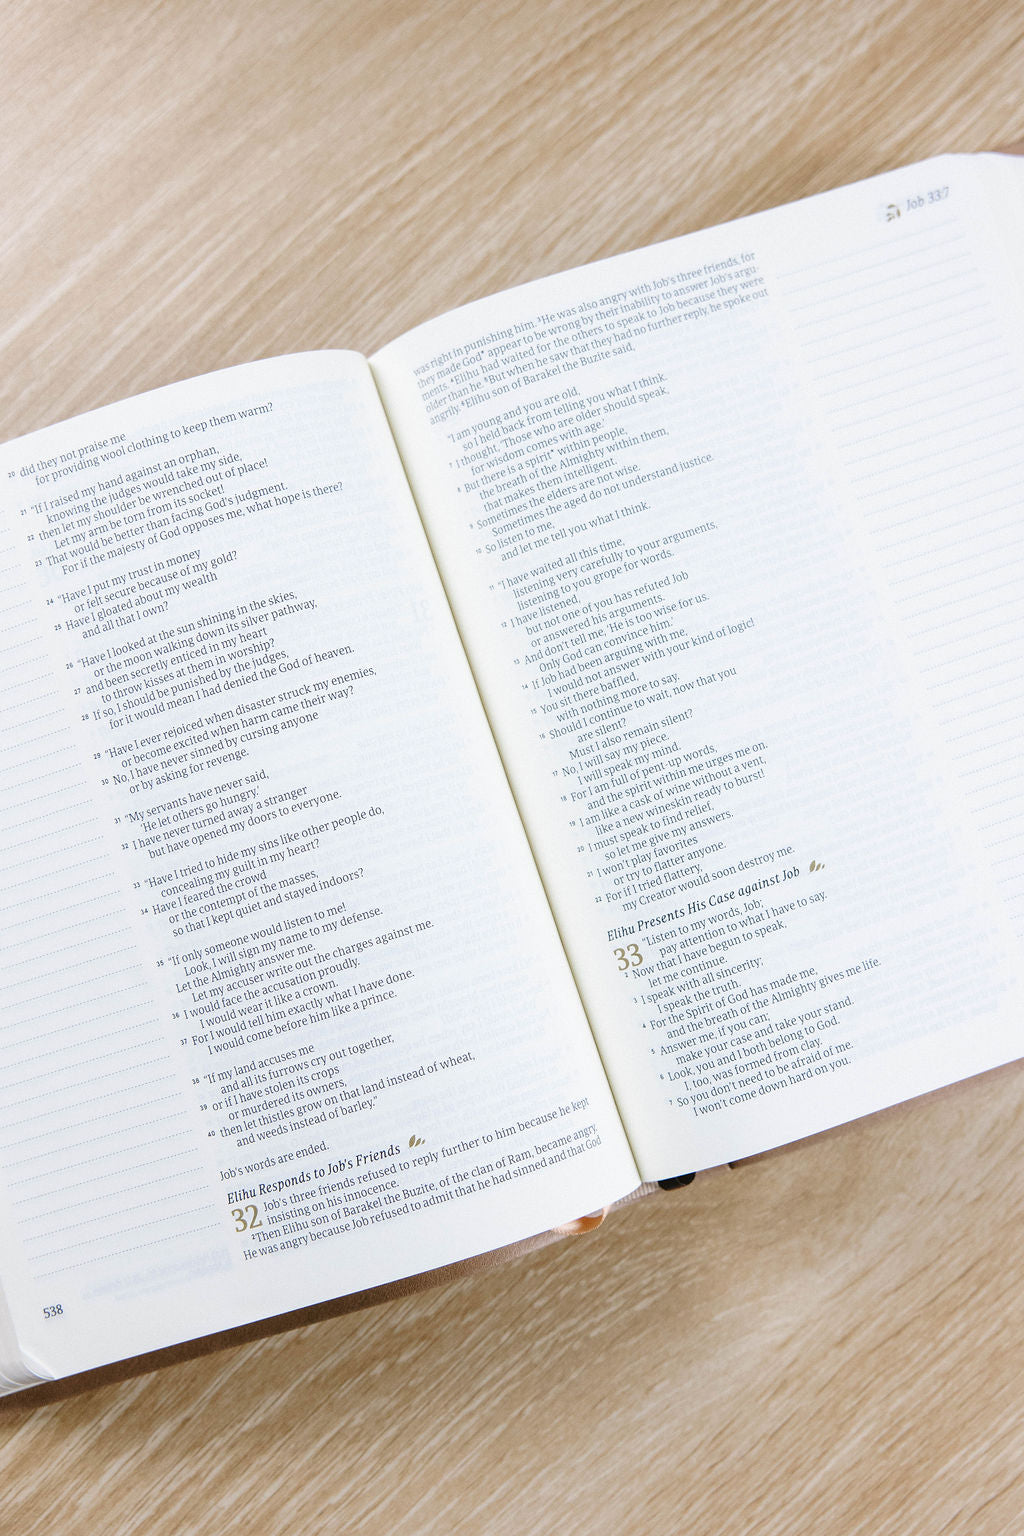 20 did they not praise me
for providing wool clothing to keep them warm?
21 “If I raised my hand against an orphan,
knowing the judges would take my side,
22 then let my shoulder be wrenched out of place!
Let my arm be torn from its socket!
23 That would be better than facing God’s judgment.
For if the majesty of God opposes me, what hope is there?
24 “Have I put my trust in money
or felt secure because of my gold?
25 Have I gloated about my wealth
and all that I own?
26 “Have I looked at the sun shining in the skies,
or the moon walking down its silver pathway,
27 and been secretly enticed in my heart
to throw kisses at them in worship?
28 If so, I should be punished by the judges,
for it would mean I had denied the God of heaven.
29 “Have I ever rejoiced when disaster struck my enemies,
or become excited when harm came their way?
30 No, I have never sinned by cursing anyone
or by asking for revenge.
31 “My servants have never said,
‘He let others go hungry.’
32 I have never turned away a stranger
but have opened my doors to everyone.
33 “Have I tried to hide my sins like other people do,
concealing my guilt in my heart?
34 Have I feared the crowd
or the contempt of the masses,
so that I kept quiet and stayed indoors?
35 “If only someone would listen to me!
Look, I will sign my name to my defense.
Let the Almighty answer me.
Let my accuser write out the charges against me.
36 I would face the accusation proudly.
I would wear it like a crown.
37 For I would tell him exactly what I have done.
I would come before him like a prince.
38 “If my land accuses me
and all its furrows cry out together,
39 or if I have stolen its crops
or murdered its owners,
40 then let thistles grow on that land instead of wheat,
and weeds instead of barley.”
Job’s words are ended.
Elihu Responds to Job’s Friends
32 Job’s three friends refused to reply further to him because he kept
insisting on his innocence.
2 Then Elihu son of Barakel the Buzite, of the clan of Ram, became angry.
He was angry because Job refused to admit that he had sinned and that God
538
Job 33:7
was right in punishing him. 3 He was also angry with Job’s three friends, for
they made God* appear to be wrong by their inability to answer Job’s argu-
ments. 4 Elihu had waited for the others to speak to Job because they were
older than he. 5 But when he saw that they had no further reply, he spoke out
angrily. 6 Elihu son of Barakel the Buzite said,
“I am young and you are old,
so I held back from telling you what I think.
7 I thought, ‘Those who are older should speak,
for wisdom comes with age.’
8 But there is a spirit* within people,
the breath of the Almighty within them,
that makes them intelligent.
9 Sometimes the elders are not wise.
Sometimes the aged do not understand justice.
10 So listen to me,
and let me tell you what I think.
11 “I have waited all this time,
listening very carefully to your arguments,
listening to you grope for words.
12 I have listened,
but not one of you has refuted Job
or answered his arguments.
13 And don’t tell me, ‘He is too wise for us.
Only God can convince him.’
14 If Job had been arguing with me,
I would not answer with your kind of logic!
15 You sit there baffled,
with nothing more to say.
16 Should I continue to wait, now that you
are silent?
Must I also remain silent?
17 No, I will say my piece.
I will speak my mind.
18 For I am full of pent-up words,
and the spirit within me urges me on.
19 I am like a cask of wine without a vent,
like a new wineskin ready to burst!
20 I must speak to find relief,
so let me give my answers.
21 I won’t play favorites
or try to flatter anyone.
22 For if I tried flattery,
my Creator would soon destroy me.
Elihu Presents His Case against Job
33 “Listen to my words, Job;
pay attention to what I have to say.
2 Now that I have begun to speak,
let me continue.
3 I speak with all sincerity;
I speak the truth.
4 For the Spirit of God has made me,
and the breath of the Almighty gives me life.
5 Answer me, if you can;
make your case and take your stand.
6 Look, you and I both belong to God.
I, too, was formed from clay.
7 So you don’t need to be afraid of me.
I won’t come down hard on you.